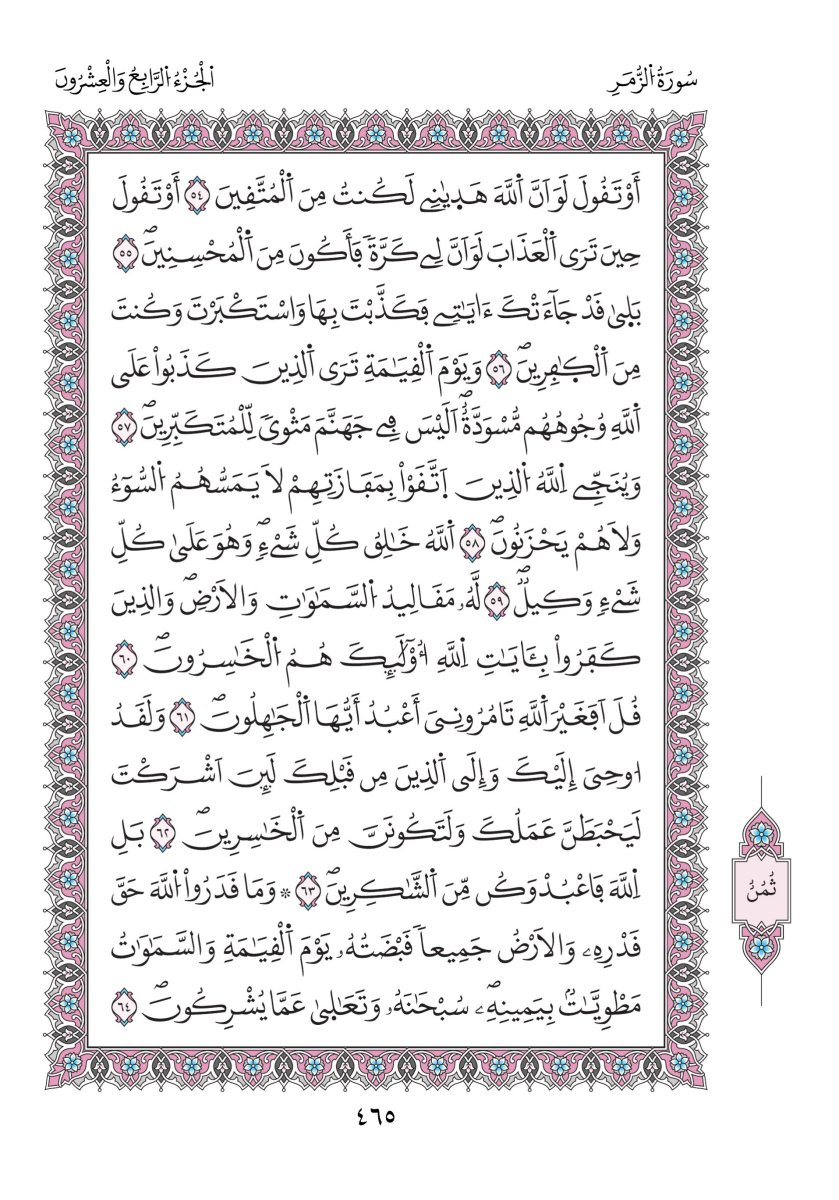 سُورَةُ اُ۬لزُّمَرِ
اَ۬لْجُزْءُ اُ۬لرَّابِعُ وَالْعِشْرُونَ
أَوْ تَقُولَ لَوَ اَنَّ اَ۬للَّهَ هَد۪يٰنِے لَكُنتُ مِنَ اَ۬لْمُتَّقِينَ ٥٤ أَوْ تَقُولَ
حِينَ تَرَى اَ۬لْعَذَابَ لَوَ اَنَّ لِے كَرَّةٗ فَأَكُونَ مِنَ اَ۬لْمُحْسِنِينَۖ ٥٥
بَل۪يٰ قَدْ جَآءَتْكَ ءَايَٰتِے فَكَذَّبْتَ بِهَا وَاسْتَكْبَرْتَ وَكُنتَ
مِنَ اَ۬لْكٰ۪فِرِينَۖ ٥٦ وَيَوْمَ اَ۬لْقِيَٰمَةِ تَرَى اَ۬لذِينَ كَذَبُواْ عَلَى
اَ۬للَّهِ وُجُوهُهُم مُّسْوَدَّةٌۖ اَلَيْسَ فِے جَهَنَّمَ مَثْوىٗ لِّلْمُتَكَبِّرِينَۖ ٥٧
وَيُنَجِّے اِ۬للَّهُ اُ۬لذِينَ اَ۪تَّقَوْاْ بِمَفَازَتِهِمْ لَا يَمَسُّهُمُ اُ۬لسُّوٓءُ
وَلَا هُمْ يَحْزَنُونَۖ ٥٨ اَ۬للَّهُ خَٰلِقُ كُلِّ شَےْءٖۖ وَهُوَ عَلَىٰ كُلِّ
شَےْءٖ وَكِيلٞۖ ٥٩ لَّهُۥ مَقَالِيدُ اُ۬لسَّمَٰوَٰتِ وَالَارْضِۖ وَالذِينَ
كَفَرُواْ بِـَٔايَٰتِ اِ۬للَّهِ أُوْلَٰٓئِكَ هُمُ اُ۬لْخَٰسِرُونَۖ ٦٠
قُلَ اَفَغَيْرَ اَ۬للَّهِ تَامُرُونِيَ أَعْبُدُ أَيُّهَا اَ۬لْجَٰهِلُونَۖ ٦١ وَلَقَدُ
ا۟وحِيَ إِلَيْكَ وَإِلَى اَ۬لذِينَ مِن قَبْلِكَ لَئِنَ اَشْرَكْتَ
لَيَحْبَطَنَّ عَمَلُكَ وَلَتَكُونَنَّ مِنَ اَ۬لْخَٰسِرِينَۖ ٦٢ بَلِ
اِ۬للَّهَ فَاعْبُدْ وَكُن مِّنَ اَ۬لشَّٰكِرِينَۖ ٦٣ * وَمَا قَدَرُواْ اُ۬للَّهَ حَقَّ
قَدْرِهِۦ وَالَارْضُ جَمِيعاٗ قَبْضَتُهُۥ يَوْمَ اَ۬لْقِيَٰمَةِ وَالسَّمَٰوَٰتُ
مَطْوِيَّٰتُۢ بِيَمِينِهِۦۖ سُبْحَٰنَهُۥ وَتَعَٰل۪يٰ عَمَّا يُشْرِكُونَۖ ٦٤
ثُمُنُ
٤٦٥